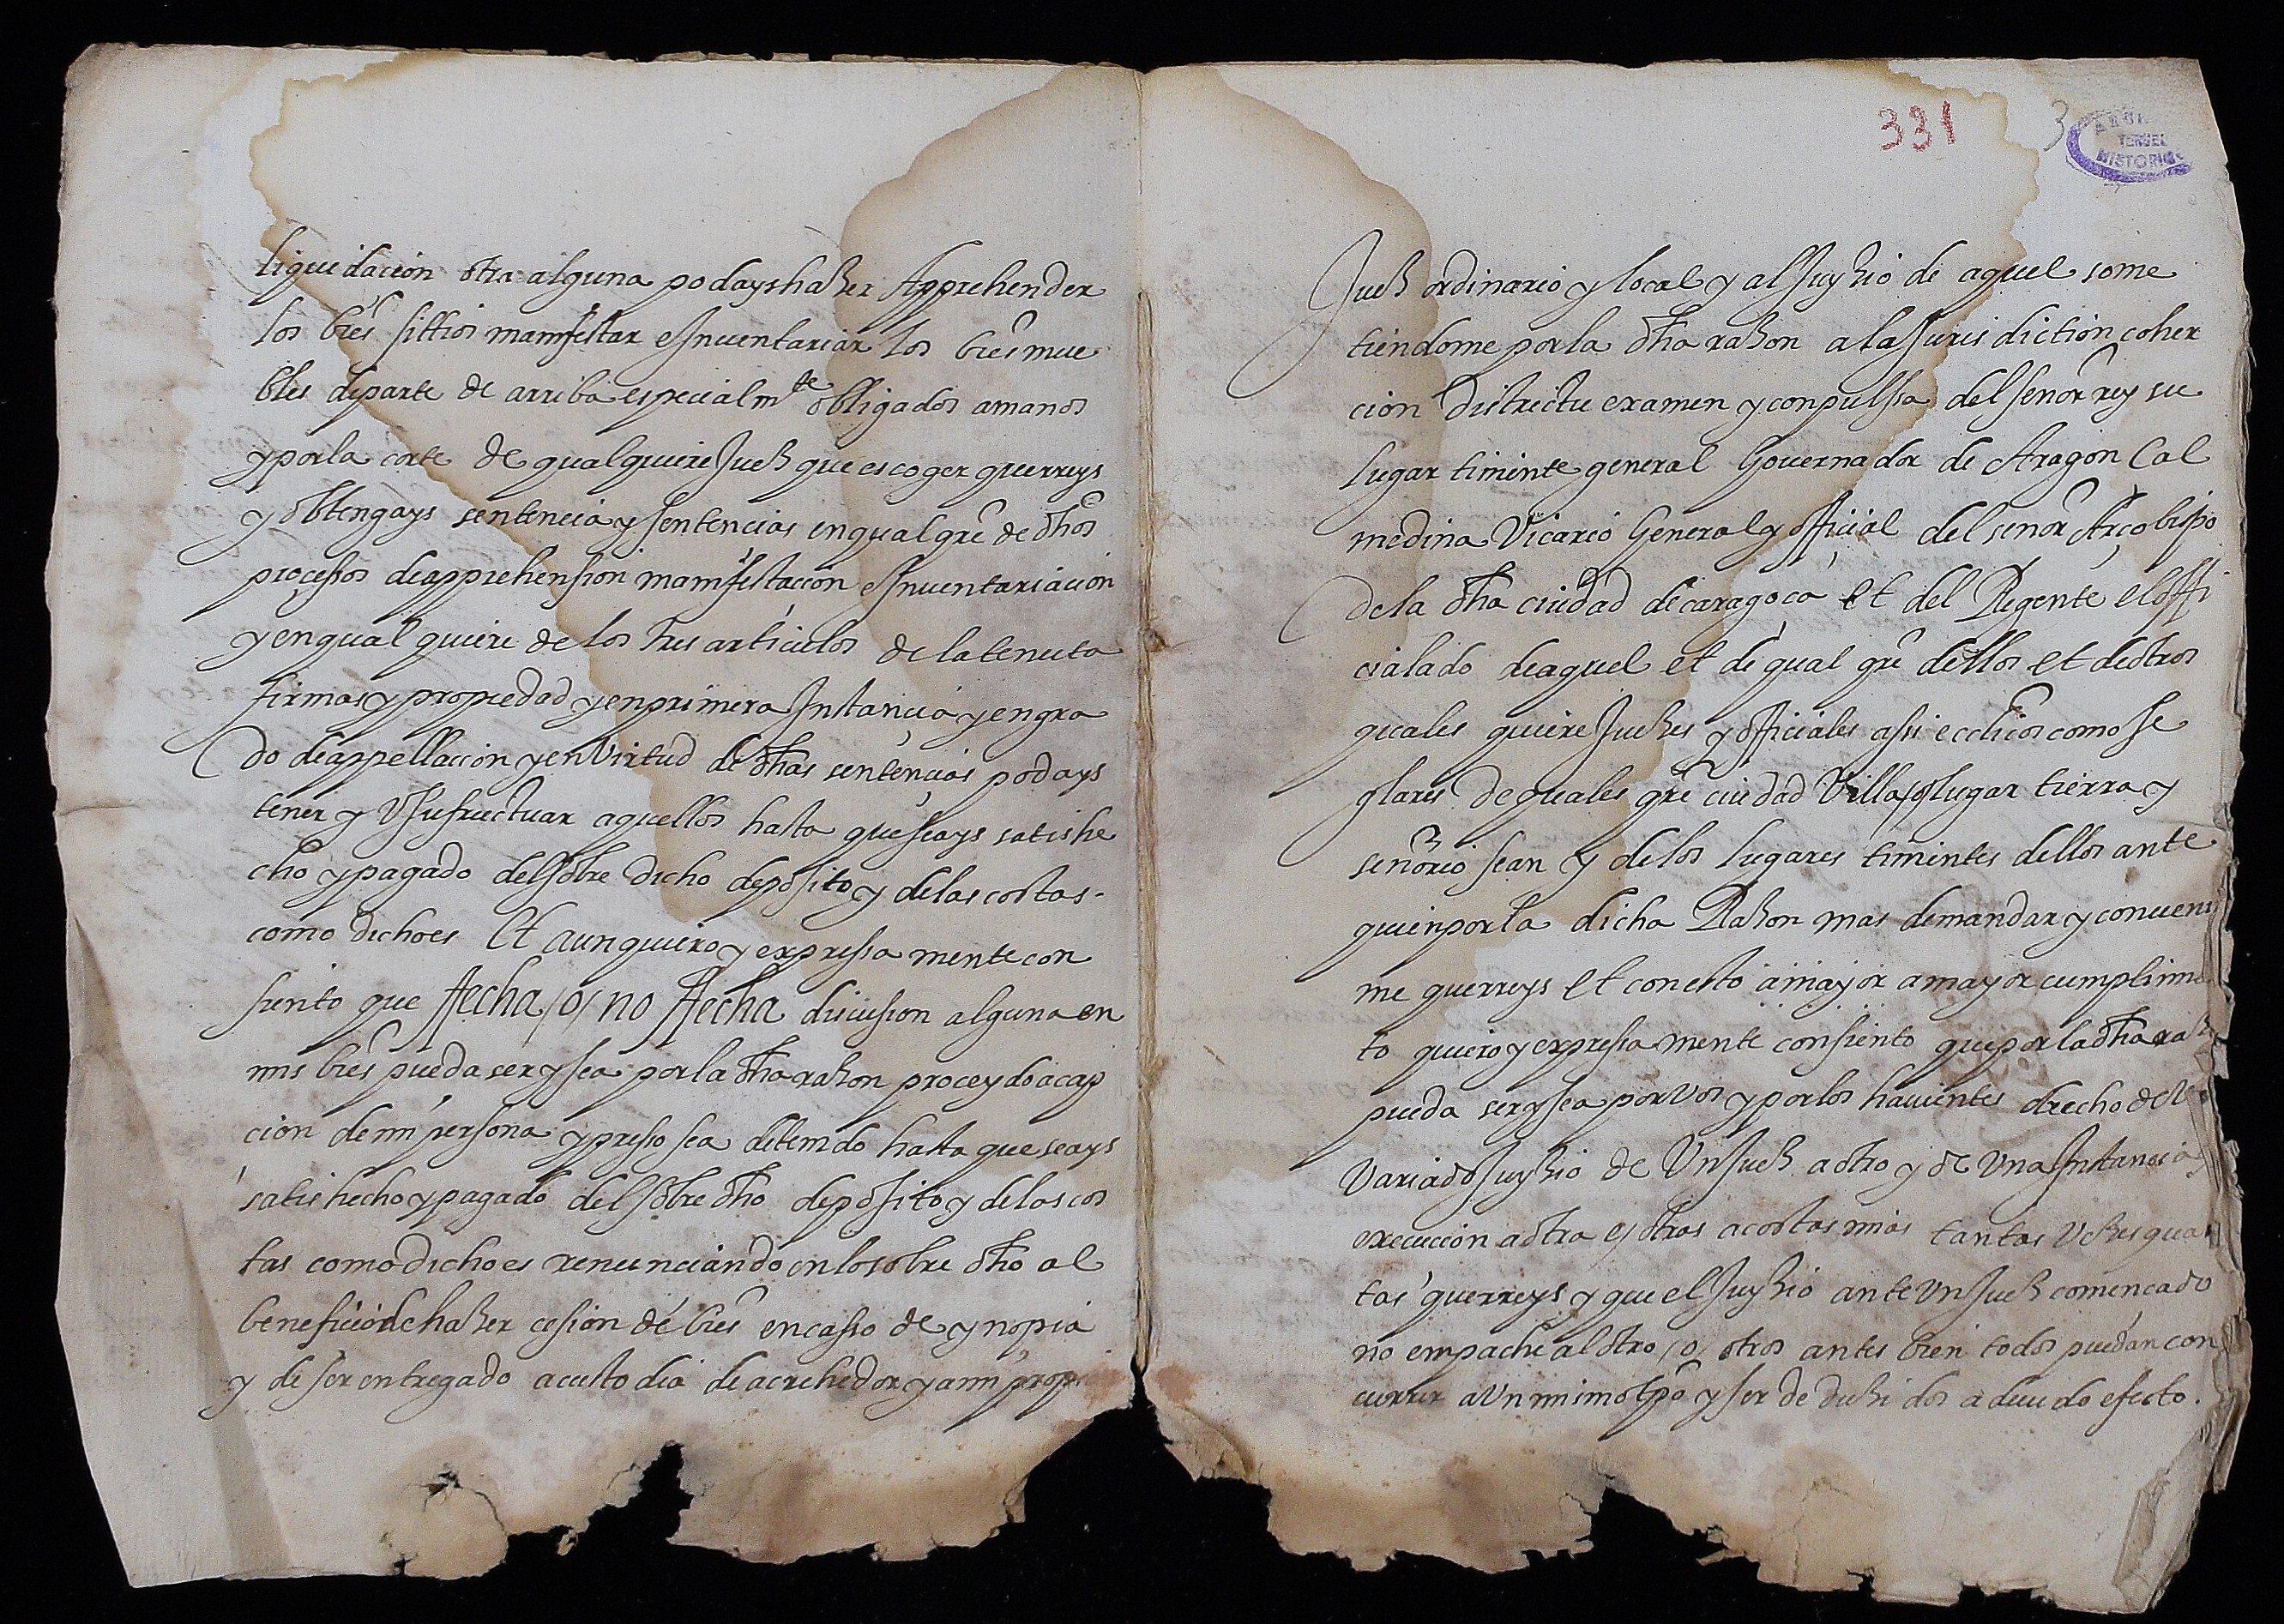 liquidacion otra alguna podays hazer Apprehender
los bies sittios manifestar e Inuentariar los bies mue
bles de parte de arriba especialmte obligados a manos
y por la corte de qualquiere Juez que escoger querreys
y obtengays sentencia y sentencias en qual qre de dhos
processos de apprehension manifestacion e Inuentariacion
y en qual quiere de los tres articulos de la tenuta
firmas y propiedad y en primera Instancia y en gra
do de appellacion y en Virtud de dhas sentencias podays
tener y Vsufructuar aquellos hasta que seays satishe
cho y pagado del sobre dicho deposito y de las costas.
como dicho es Et aun quiero y expressa mente con
siento que ffecha /o/ no ffecha discusion alguna en
mis bies pueda ser y sea por la dha razon proceydo a cap
cion de mi persona y presso sea detenido hasta que seays
satishecho y pagado del sobre dho deposito y de las cos
tas como dicho es renunciando en lo sobre dho al
beneficio de hazer cesion de bies en casso de ynopia
y de ser entregado a custodia de acrehedor y a mi propi
331
3
TERUEL
HISTORICO
Juez ordinario y local y al Juyzio de aquel some
tiendome por la dha razon a la Jurisdiction coher
cion districtu examen y conpulssa del señor rey su
lugar tiniente general Gouernador de Aragon Cal
medina Vicario General y official del señor Arçobispo
de la dha ciudad de caragoça et del Regente el offi
cialado de aquel et de qual qre dellos et de otros
quales quiere Juezes y officiales assi ecclicos como se
glares de quales qre ciudad Villa /o/ lugar tierra y
señorio sean y de los lugares tinientes dellos ante
quien por la dicha Razon mas demandar y conueni
me querreys et con esto a mayor a mayor cumplimie
to quiero y expressa mente consiento que por la dha raz
pueda ser y sea por vos y por los hauientes drecho de V
Variado Juyzio de Vn Juez a otro y de Vna Instancia
execucion a otra e otras a costas mias tantas Vezes quan
tas querreys y que el Juyzio ante Vn Juez comencado
no empache al otro /o/ otros antes bien todos puedan con
currir a Vn mismo tpo y ser deduzidos a deuido efecto.